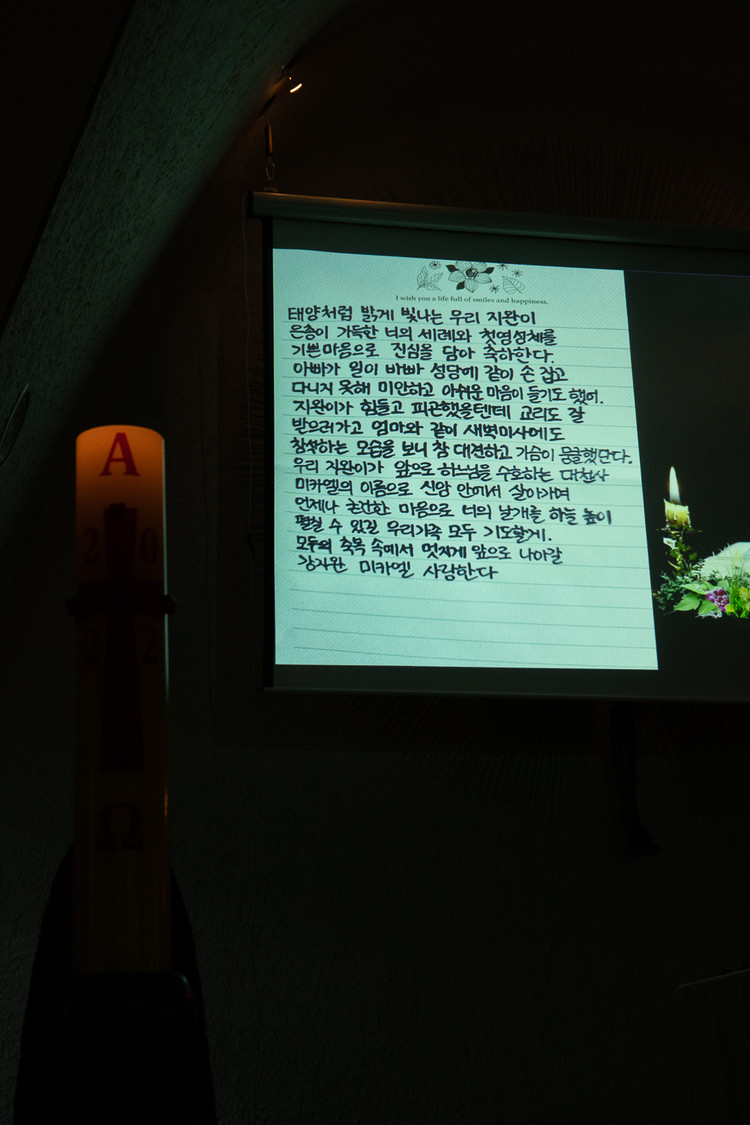 I wish you a life full of smiles and happiness.
태양처럼 밝게 빛나는 우리 지완이
은총이 가득한 너의 세례와 첫영성체를
기쁜마음으로 진심을 담아 축하한다.
아빠가 일이 바빠 성당에 같이 손 잡고
다니지 못해 미안하고 아쉬운 마음이 들기도 했어.
지완이가 힘들고 피곤했을텐데 교리도 잘
받으러가고 엄마와 같이 새벽미사에도
참석하는 모습을 보니 참 대견하고 가슴이 뭉클했단다.
우리 지완이가 앞으로 하느님을 수호하는 대천사
미카엘의 이름으로 신앙 안에서 살아가며
언제나 온전한 마음으로 너의 날개를 하늘 높이
펼칠 수 있길 우리가족 모두 기도할게.
모두의 축복 속에서 멋지게 앞으로 나아갈
강지완 미카엘 사랑한다
A
2 0
2 2
Ω